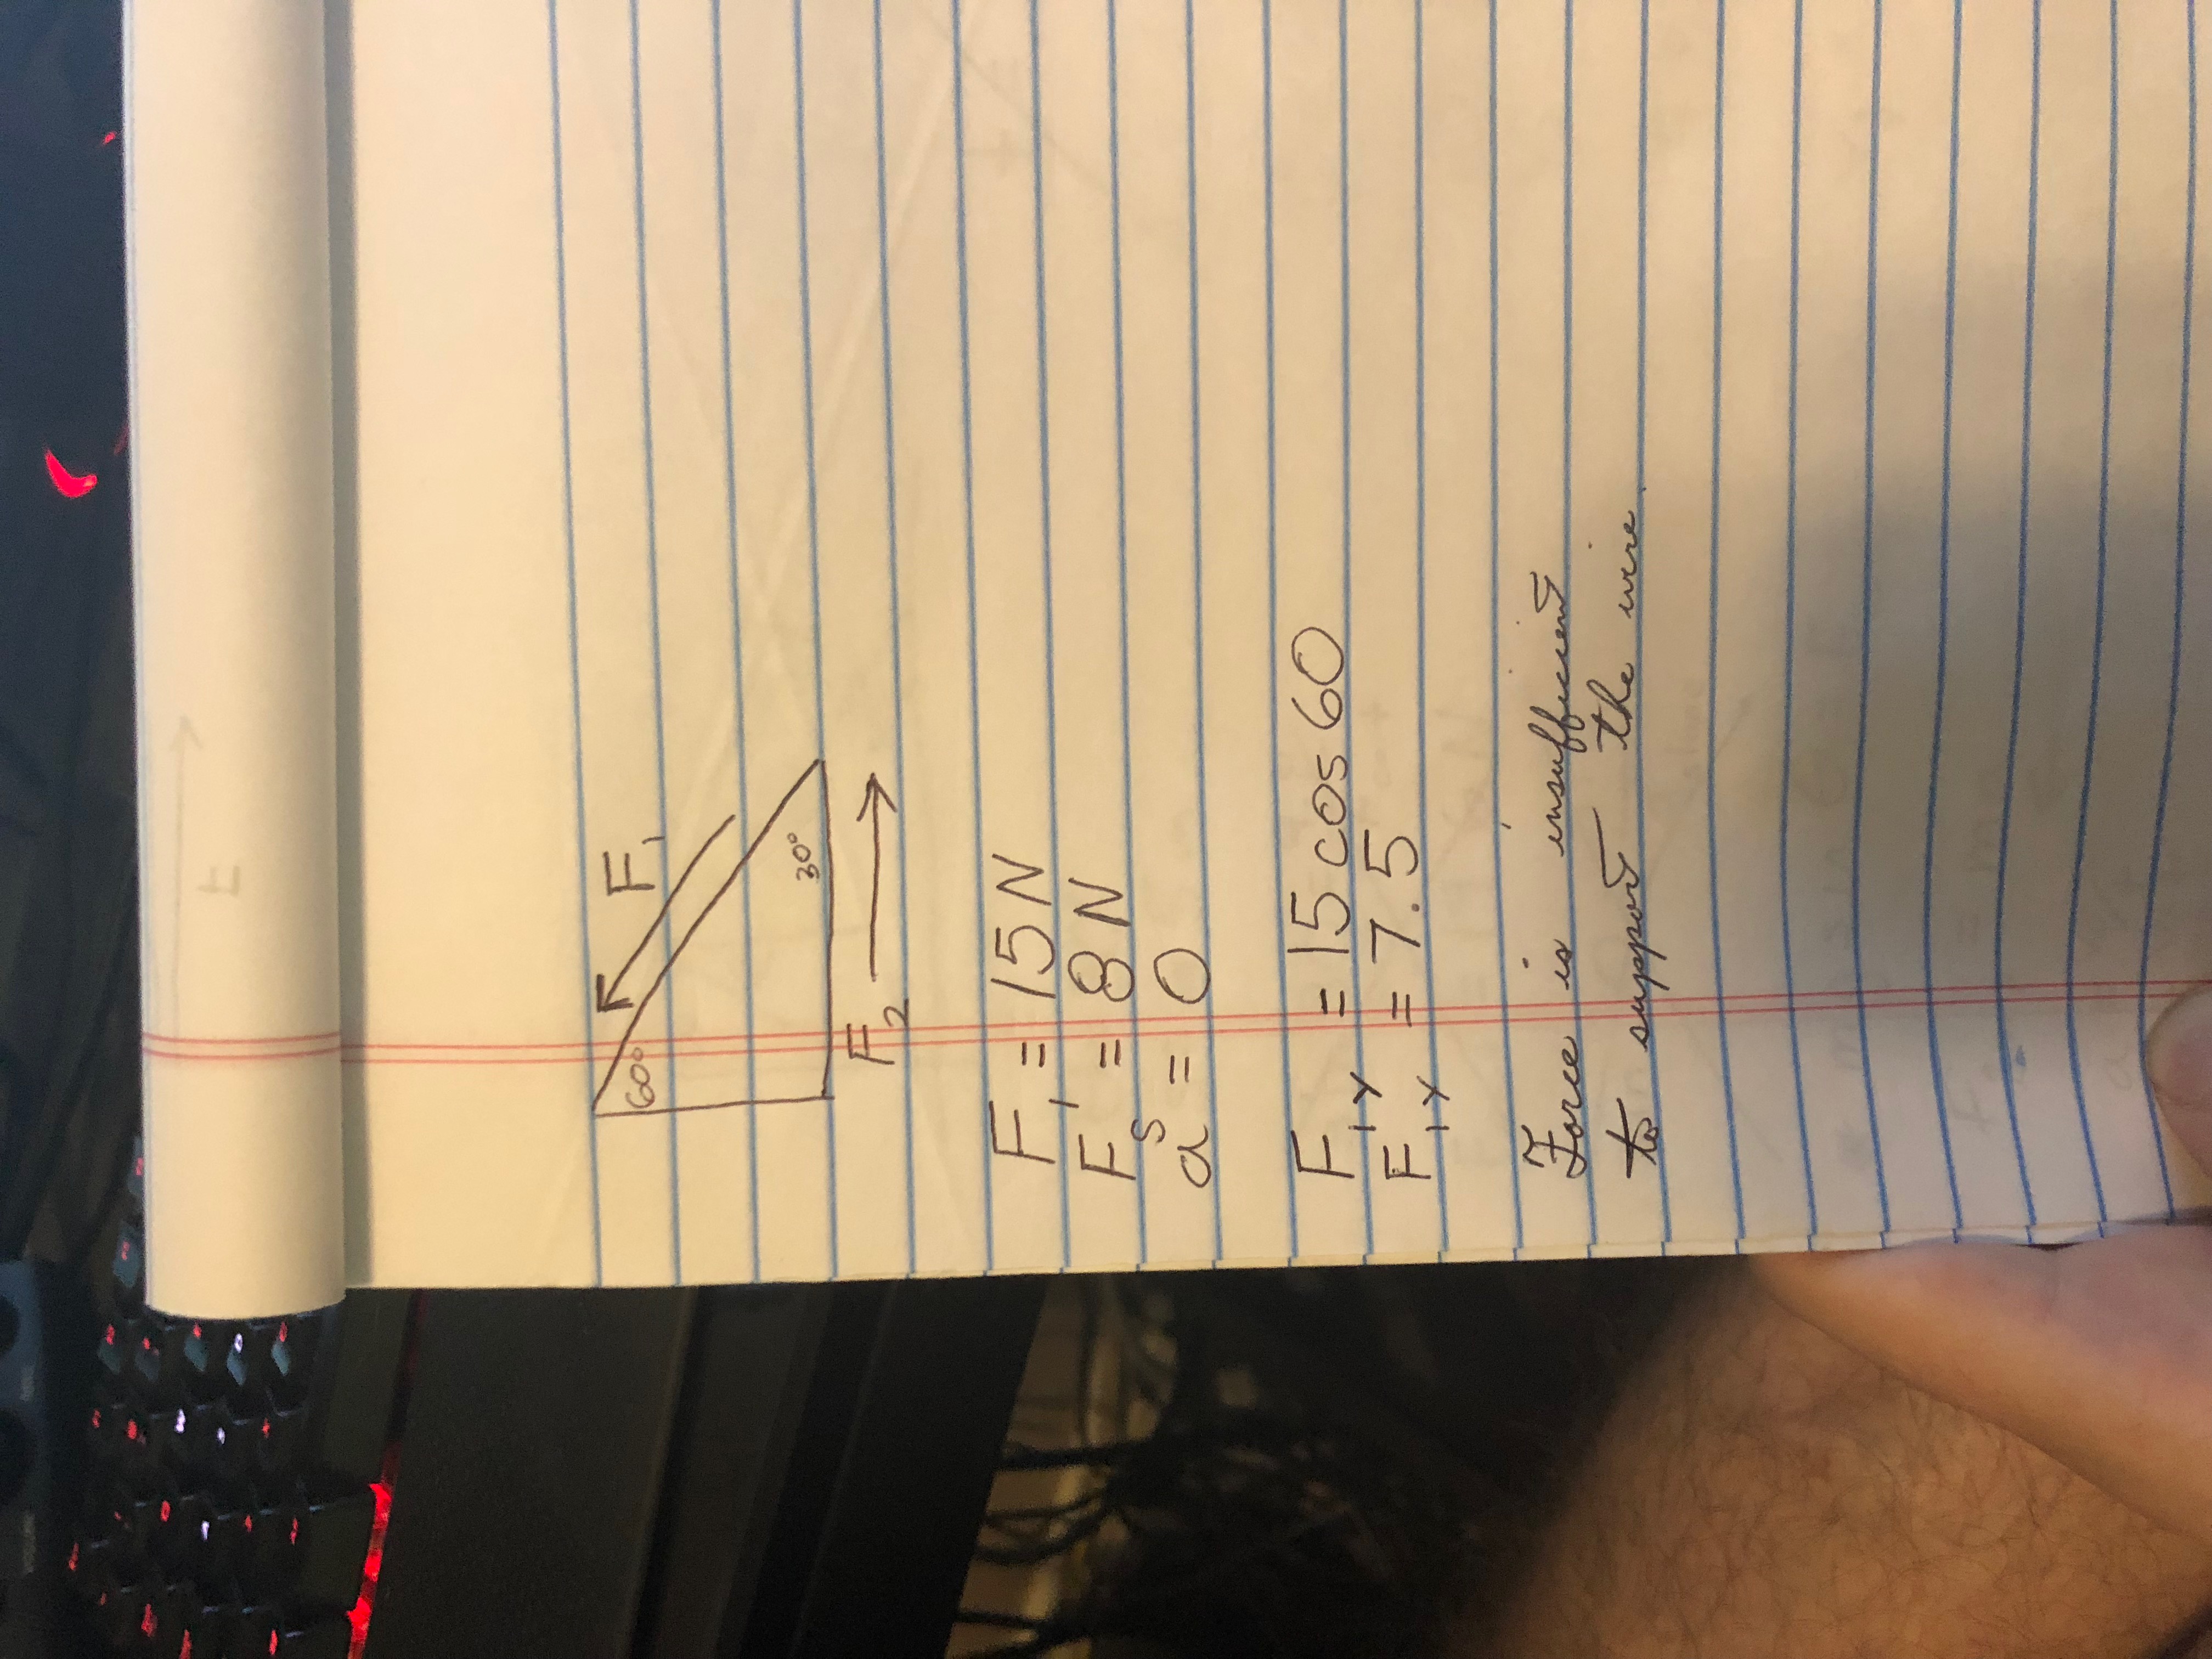 60°
F₁
30°
F₂
F₁ = 15 N
Fₛ = 8 N
a = 0
F₁ᵧ = 15 cos 60
F₁ᵧ = 7.5
Force is insufficient
to support the wire.